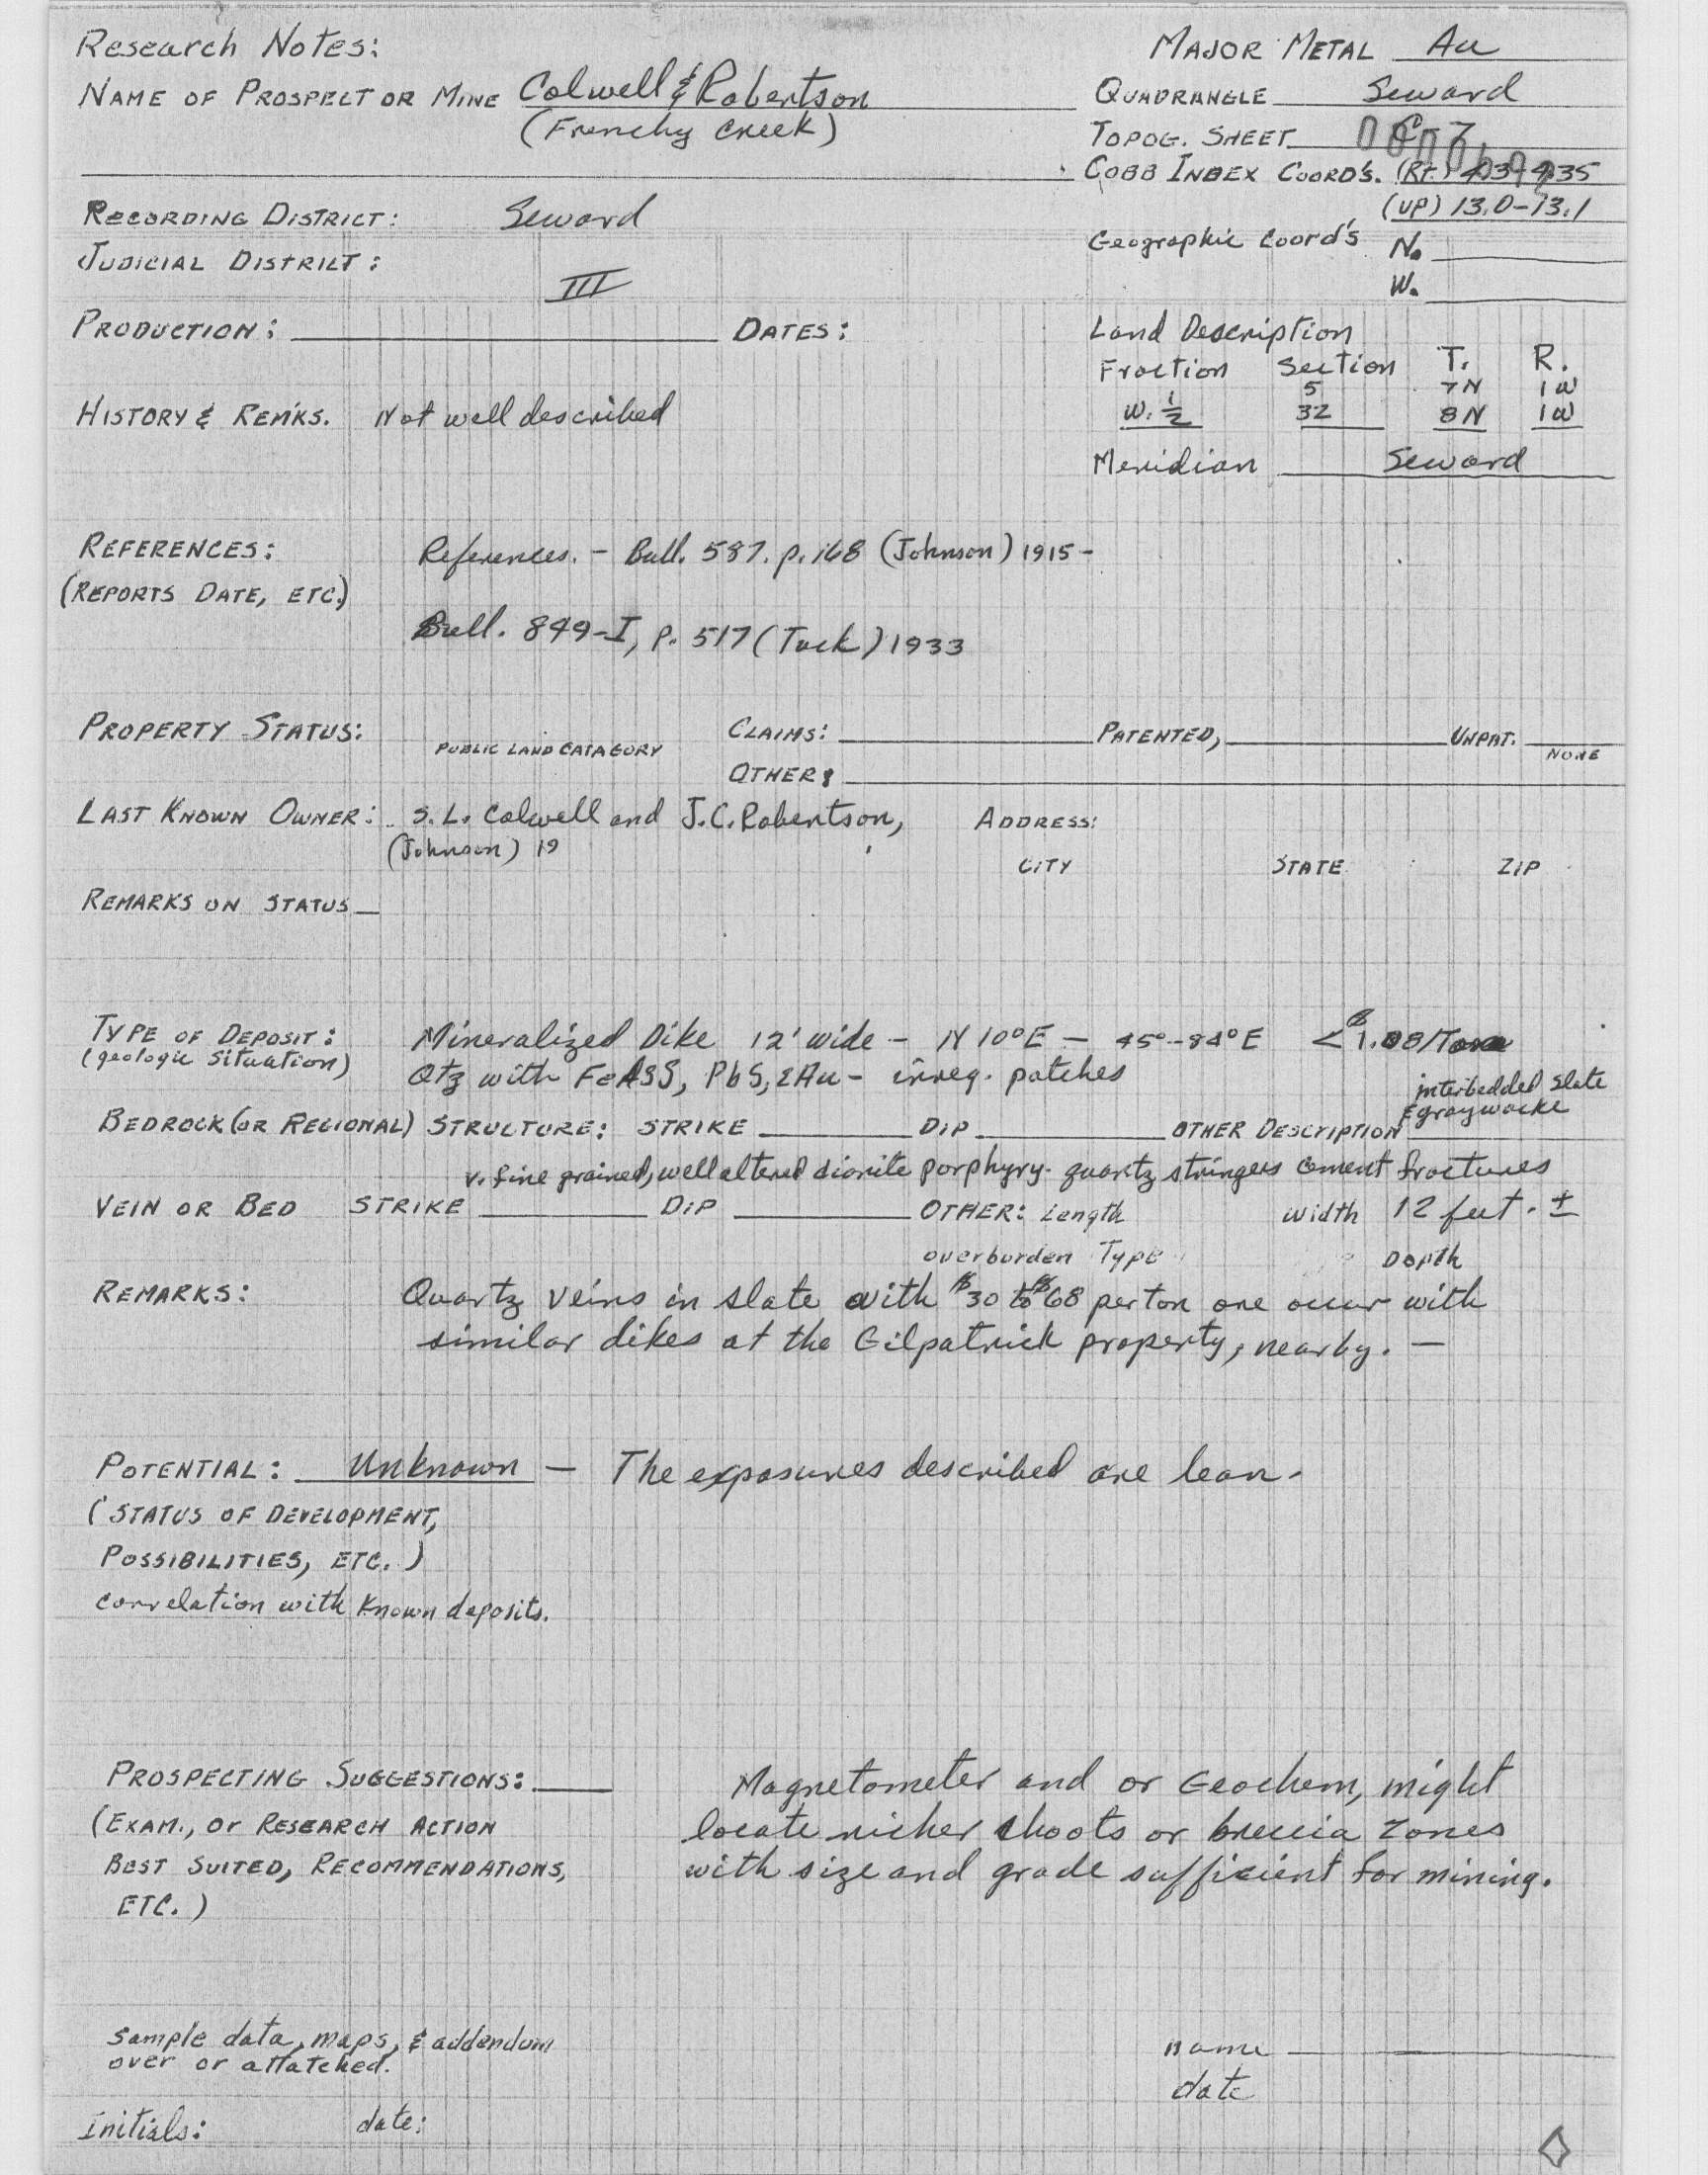 Research Notes:
MAJOR METAL Au
NAME OF PROSPECT OR MINE Colwell & Robertson
(Frenchy Creek)
QUADRANGLE Seward
TOPOG. SHEET C-7
COBB INDEX COORD'S. (Rt.)
(UP) 13.0-13.1
RECORDING DISTRICT: Seward
Geographic Coord's N.
W.
JUDICIAL DISTRICT:
III
PRODUCTION: DATES:
Land Description
Fraction Section T. R.
5 7N 1W
W. 1/2 32 8N 1W
HISTORY & REM'KS. Not well described
Meridian Seward
REFERENCES: References. - Bull. 587. p. 168 (Johnson) 1915 -
(REPORTS DATE, ETC.)
Bull. 849-I, p. 517 (Tuck) 1933
PROPERTY STATUS: PUBLIC LAND CATAGORY CLAIMS: PATENTED, UNPAT. NONE
OTHER:
LAST KNOWN OWNER: S. L. Colwell and J.C. Robertson, ADDRESS:
(Johnson) 19
CITY STATE ZIP
REMARKS ON STATUS
TYPE OF DEPOSIT: Mineralized Dike 12' wide - N 10°E - 45°-84°E < $1.08/Ton
(geologic situation) Qtz with FeASS, PbS, & Au - irreg. patches
interbedded slate
& graywacke
BEDROCK (OR REGIONAL) STRUCTURE: STRIKE DIP OTHER DESCRIPTION
v. fine grained, well altered diorite porphyry - quartz stringers cement fractures
VEIN OR BED STRIKE DIP OTHER: Length width 12 feet. ±
overburden Type Depth
REMARKS: Quartz veins in slate with $30 to $68 per ton ore occur with
similar dikes at the Gilpatrick property, nearby. —
POTENTIAL: Unknown — The exposures described are lean.
(STATUS OF DEVELOPMENT,
POSSIBILITIES, ETC.)
correlation with known deposits.
PROSPECTING SUGGESTIONS: Magnetometer and or Geochem, might
(EXAM., or RESEARCH ACTION locate richer shoots or breccia zones
BEST SUITED, RECOMMENDATIONS, with size and grade sufficient for mining.
ETC.)
Sample data, maps, & addendum
over or attatched.
name
date
Initials: date: